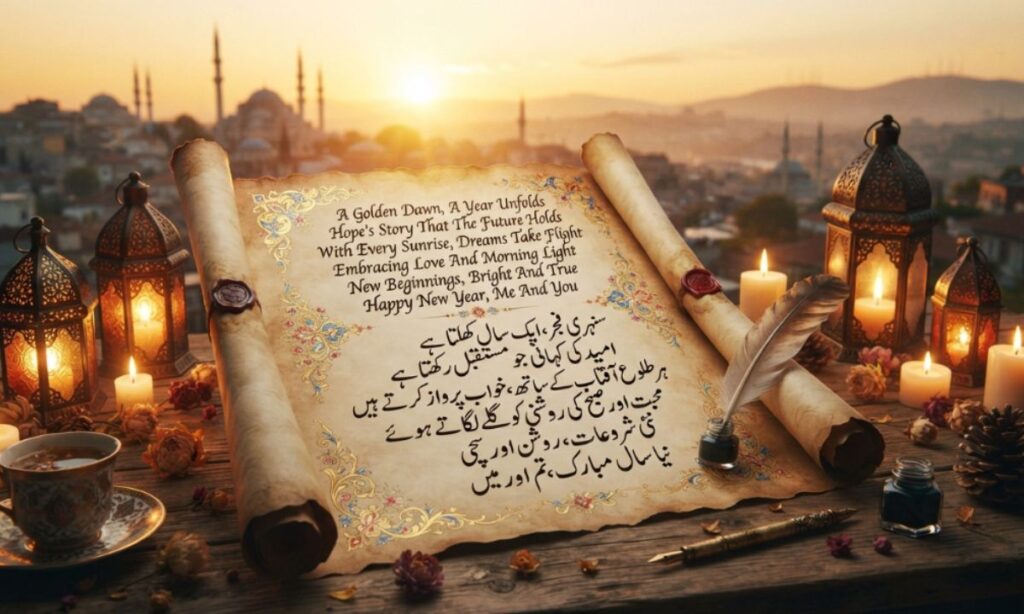 A Golden Dawn, A Year Unfolds
Hope's Story That The Future Holds
With Every Sunrise, Dreams Take Flight
Embracing Love And Morning Light
New Beginnings, Bright And True
Happy New Year, Me And You
سنہری فجر، ایک سال کھلتا ہے
امید کی کہانی جو مستقبل رکھتا ہے
ہر طلوع آفتاب کے ساتھ، خواب پرواز کرتے ہیں
محبت اور صبح کی روشنی کو گلے لگاتے ہوئے
نئی شروعات، روشن اور سچی
نیا سال مبارک، تم اور میں